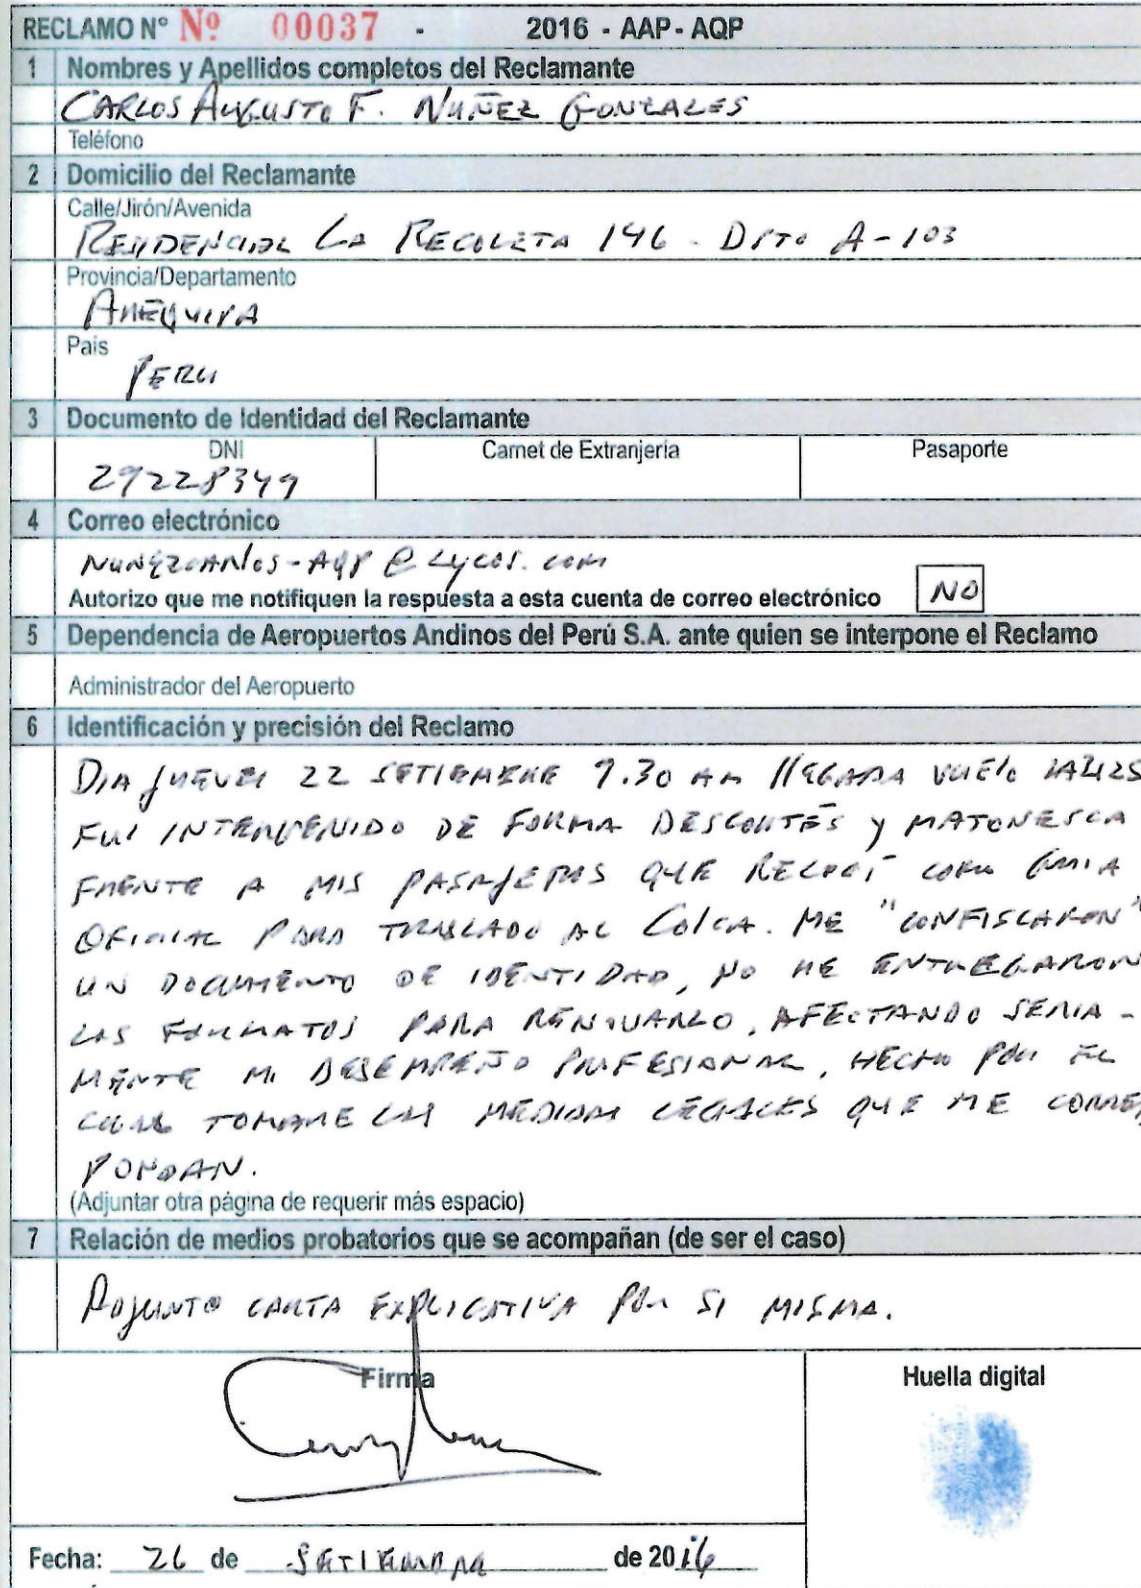 RECLAMO N° Nº 00037 - 2016 - AAP - AQP
1 Nombres y Apellidos completos del Reclamante
CARLOS AUGUSTO F. NUÑEZ GONZALES
Teléfono
2 Domicilio del Reclamante
Calle/Jirón/Avenida
RESIDENCIAL LA RECOLETA 146 - DPTO A-103
Provincia/Departamento
AREQUIPA
País
PERU
3 Documento de Identidad del Reclamante
DNI Carnet de Extranjería Pasaporte
29228349
4 Correo electrónico
NUNEZCARLOS-AQP@LYCOS.COM
Autorizo que me notifiquen la respuesta a esta cuenta de correo electrónico NO
5 Dependencia de Aeropuertos Andinos del Perú S.A. ante quien se interpone el Reclamo
Administrador del Aeropuerto
6 Identificación y precisión del Reclamo
DIA JUEVES 22 SETIEMBRE 9.30 AM llEGADA VUElo
FUI INTERVENIDO DE FORMA DESCORTÉS y MATONESCA
FRENTE A MIS PASAJEROS QUE RECOGÍ COMO GUIA
OFICIAL PARA TRASLADO AL COLCA. ME "CONFISCARON"
UN DOCUMENTO DE IDENTIDAD, NO ME ENTREGARON
LOS FORMATOS PARA RENOVARLO, AFECTANDO SERIA-
MENTE MI DESEMPEÑO PROFESIONAL, HECHO POR EL
CUAL TOMARE LAS MEDIDAS LEGALES QUE ME CORRES
PONDAN.
(Adjuntar otra página de requerir más espacio)
7 Relación de medios probatorios que se acompañan (de ser el caso)
ADJUNTO CARTA EXPLICATIVA POR SI MISMA.
Firma Huella digital
Fecha: 26 de SETIEMBRE de 2016